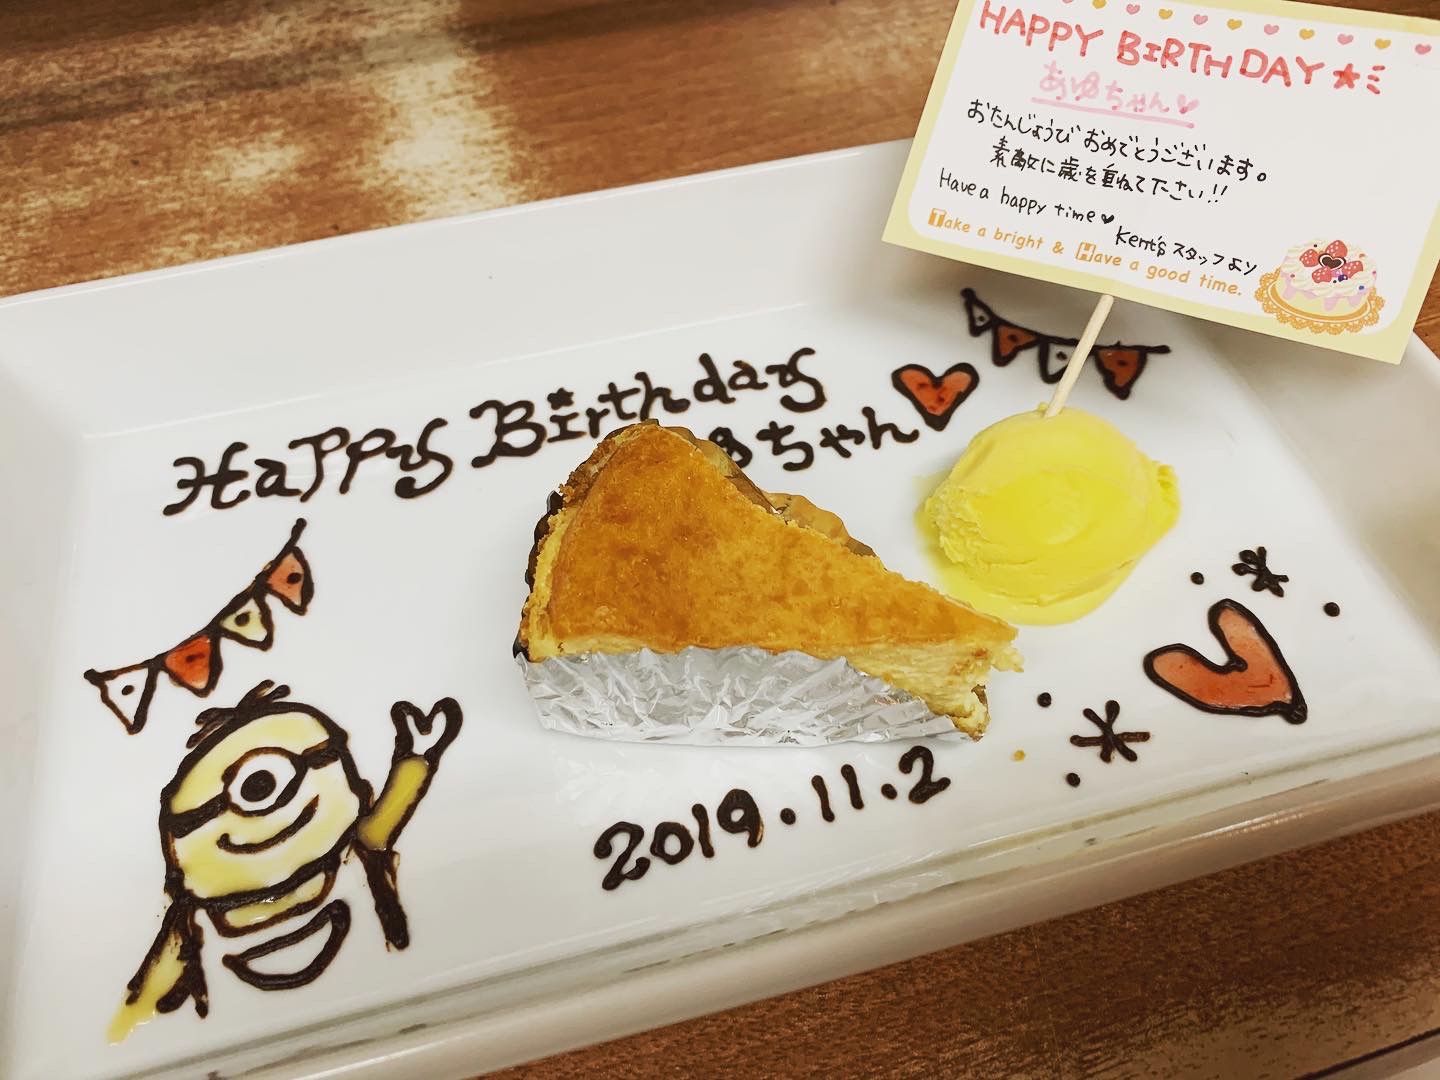 HAPPY BIRTHDAY
あゆちゃん
おたんじょうび おめでとうございます。
素敵に歳を重ねて下さい!!
Have a happy time
Kent's スタッフより
Take a bright & Have a good time.
Happy Birthday
ゆちゃん
2019.11.2